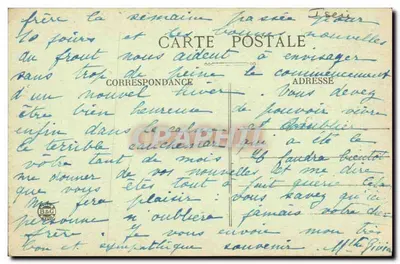 frère la semaine passée pour
10 jours et les bonnes nouvelles
du front nous aident à envisager
CARTE POSTALE
sans trop de peine le commencement
CORRESPONDANCE
ADRESSE
d'un nouvel hiver. Vous devez
être bien heureuse de pouvoir vivre
enfin dans le calme et oublier
le terrible cauchemar qui a été le
vôtre tant de mois. Il faudra bientôt
me donner de vos nouvelles et me dire
que vous êtes tout à fait Cela
me fera plaisir : vous savez qu'ici
personne n'oubliera jamais votre cher
frère. Je vous envoie mon très
bon et sympathique souvenir Mlle